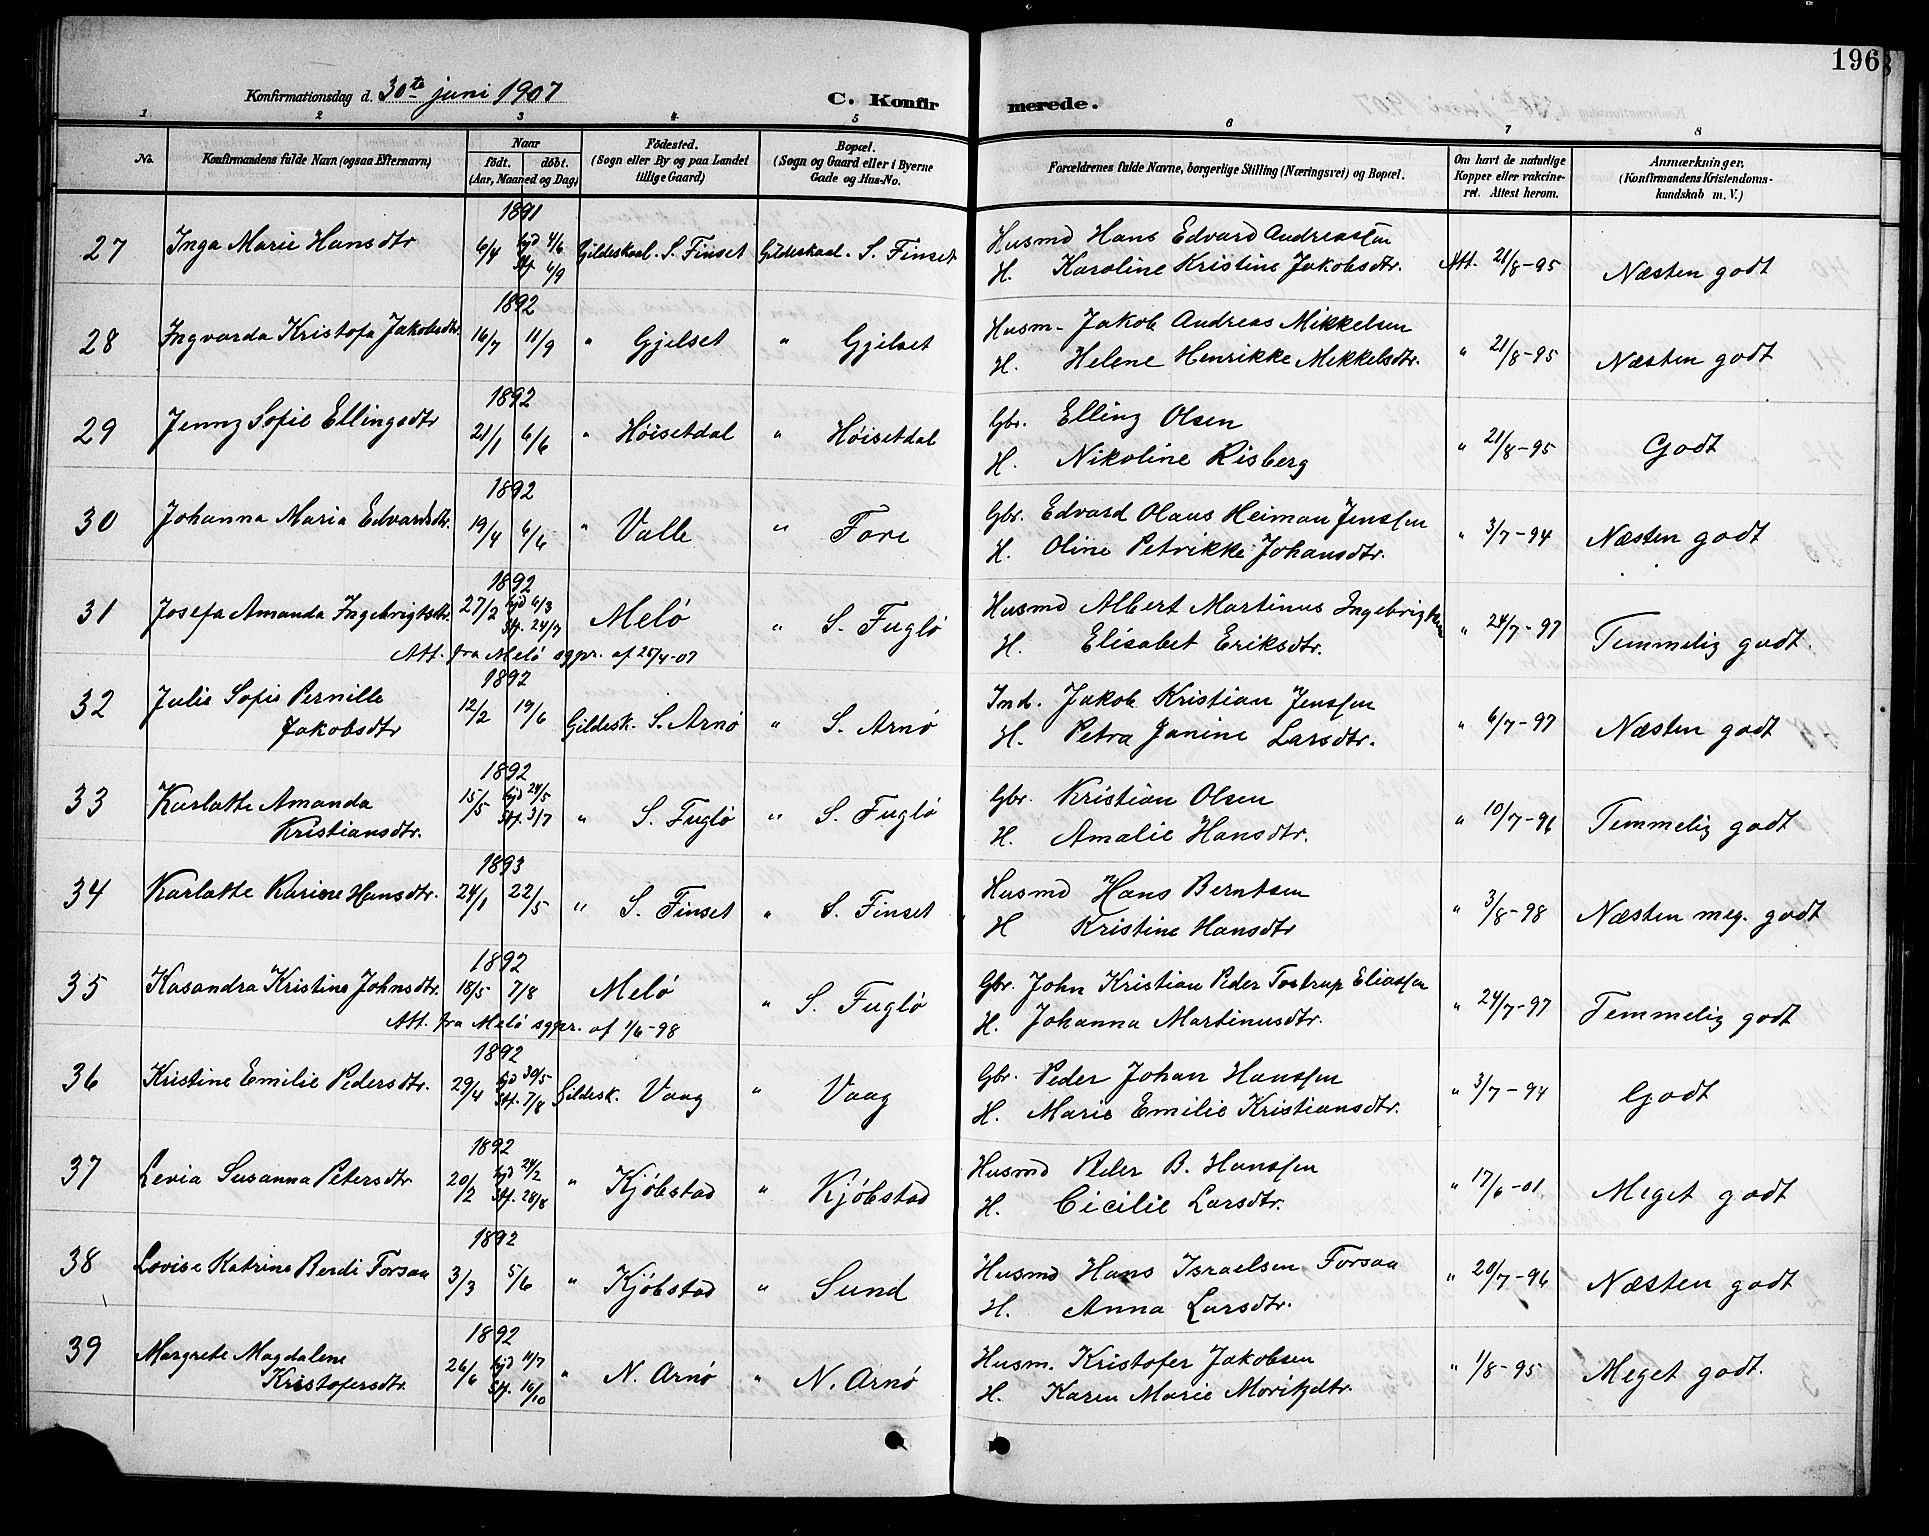 196
Konfirmationsdag d. 30te juni 1907
C. Konfirmerede.
1 2 3 4 5 6 7 8
No. Konfirmandens fulde Navn (ogsaa Efternavn) Naar födt. döbt. (Aar, Maaned og Dag) Födested. (Sogn eller By og paa Landet tillige Gaard) Bopæl. (Sogn og Gaard eller i Byerne Gade og Hus-No. Forældrenes fulde Navne, borgerlige Stilling (Næringsvei) og Bopæl. Om havt de naturlige Kopper eller vakcineret. Attest herom. Anmærkninger. (Konfirmandens Kristendomskundskab m. V.)
1891
27 Inga Marie Hansdtr 6/4 hjd 4/6 Stf. 6/9 Gildeskaal. S. Finset Gildeskaal. S. Finset Husmd Hans Edvard Andreassen
H. Karoline Kristine Jakobsdtr. Att. 21/8-95 Næsten godt
1892
28 Ingvarda Kristofa Jakobsdtr. 16/7 11/9 " Gjelset " Gjelset Husm. Jakob Andreas Mikkelsen
H. Helene Henrikke Mekkelsdtr. " 21/8-95 Næsten godt
1892
29 Jenny Sofie Ellingsdtr 21/1 6/6 " Höisetdal " Höisetdal Gbr. Elling Olsen
H. Nikoline Risberg " 21/8-95 Godt
1892
30 Johanna Maria Edvardsdtr. 19/4 6/6 " Valle " Fore Gbr. Edvard Olaus Heiman Jenssen
H. Oline Petrikke Johansdtr. " 3/7-94 Næsten godt
1892
31 Josefa Amanda Ingebrigtsdtr. 27/2 hjd 6/3 Stf. 24/7 Melö " S. Fuglö Husmd Albert Martinus Ingebrigtsen
H. Elisabet Eriksdtr. " 24/7-97 Temmelig godt.
Att. fra Melö sgpr. af 25/4-07
1892
32 Julie Sofie Pernille Jakobsdtr 12/2 19/6 Gildesk. S. Arnö " S. Arnö Ind. Jakob Kristian Jenssen
H. Petra Janine Larsdtr. " 6/7-97 Næsten godt
1892
33 Karlotte Amanda Kristiansdtr. 15/5 hjd 24/5 Stf. 3/7 " S. Fuglö " S. Fuglö Gbr. Kristian Olsen
H. Amalie Hansdtr. " 10/7-96 Temmelig godt
1893
34 Karlotte Karine Hansdtr. 24/1 22/5 " S. Finset " S. Finset Husmd Hans Berntsen
H Kristine Hansdtr " 3/8-98 Næsten meg. godt
1892
35 Kasandra Kristine Johnsdtr. 18/5 7/8 Melö " S. Fuglö Gbr. John Kristian Peder Tostrup Eliassen
H. Johanna Martinusdtr. " 24/7-97 Temmelig godt
Att. fra Melö sgpr. af 1/6-98
1892
36 Kristine Emilie Pedersdtr. 29/4 hjd 30/5 Stf. 7/8 Gildesk. Vaag " Vaag Gbr. Peder Johan Hanssen
H. Marie Emilie Kristiansdtr. " 3/7-94 Godt
1892
37 Levia Susanna Petersdtr 20/2 hjd 24/2 Stf. 28/8 " Kjöbstad " Kjöbstad Husmd Peder B. Hanssen
H. Cicilie Larsdtr. " 17/6-01 Meget godt
1892
38 Lovise Katrine Berdi Forsaa 3/3 5/6 " Kjöbstad " Sund Husmd Hans Israelsen Forsaa
H. Anna Larsdtr. " 20/7-96 Næsten godt
1892
39 Margrete Magdalene Kristofersdtr. 26/6 hjd 11/7 Stf. 16/10 " N. Arnö " N. Arnö Husm. Kristofer Jakobsen
H. Karen Marie Moritzdtr. " 1/8-95 Meget godt.